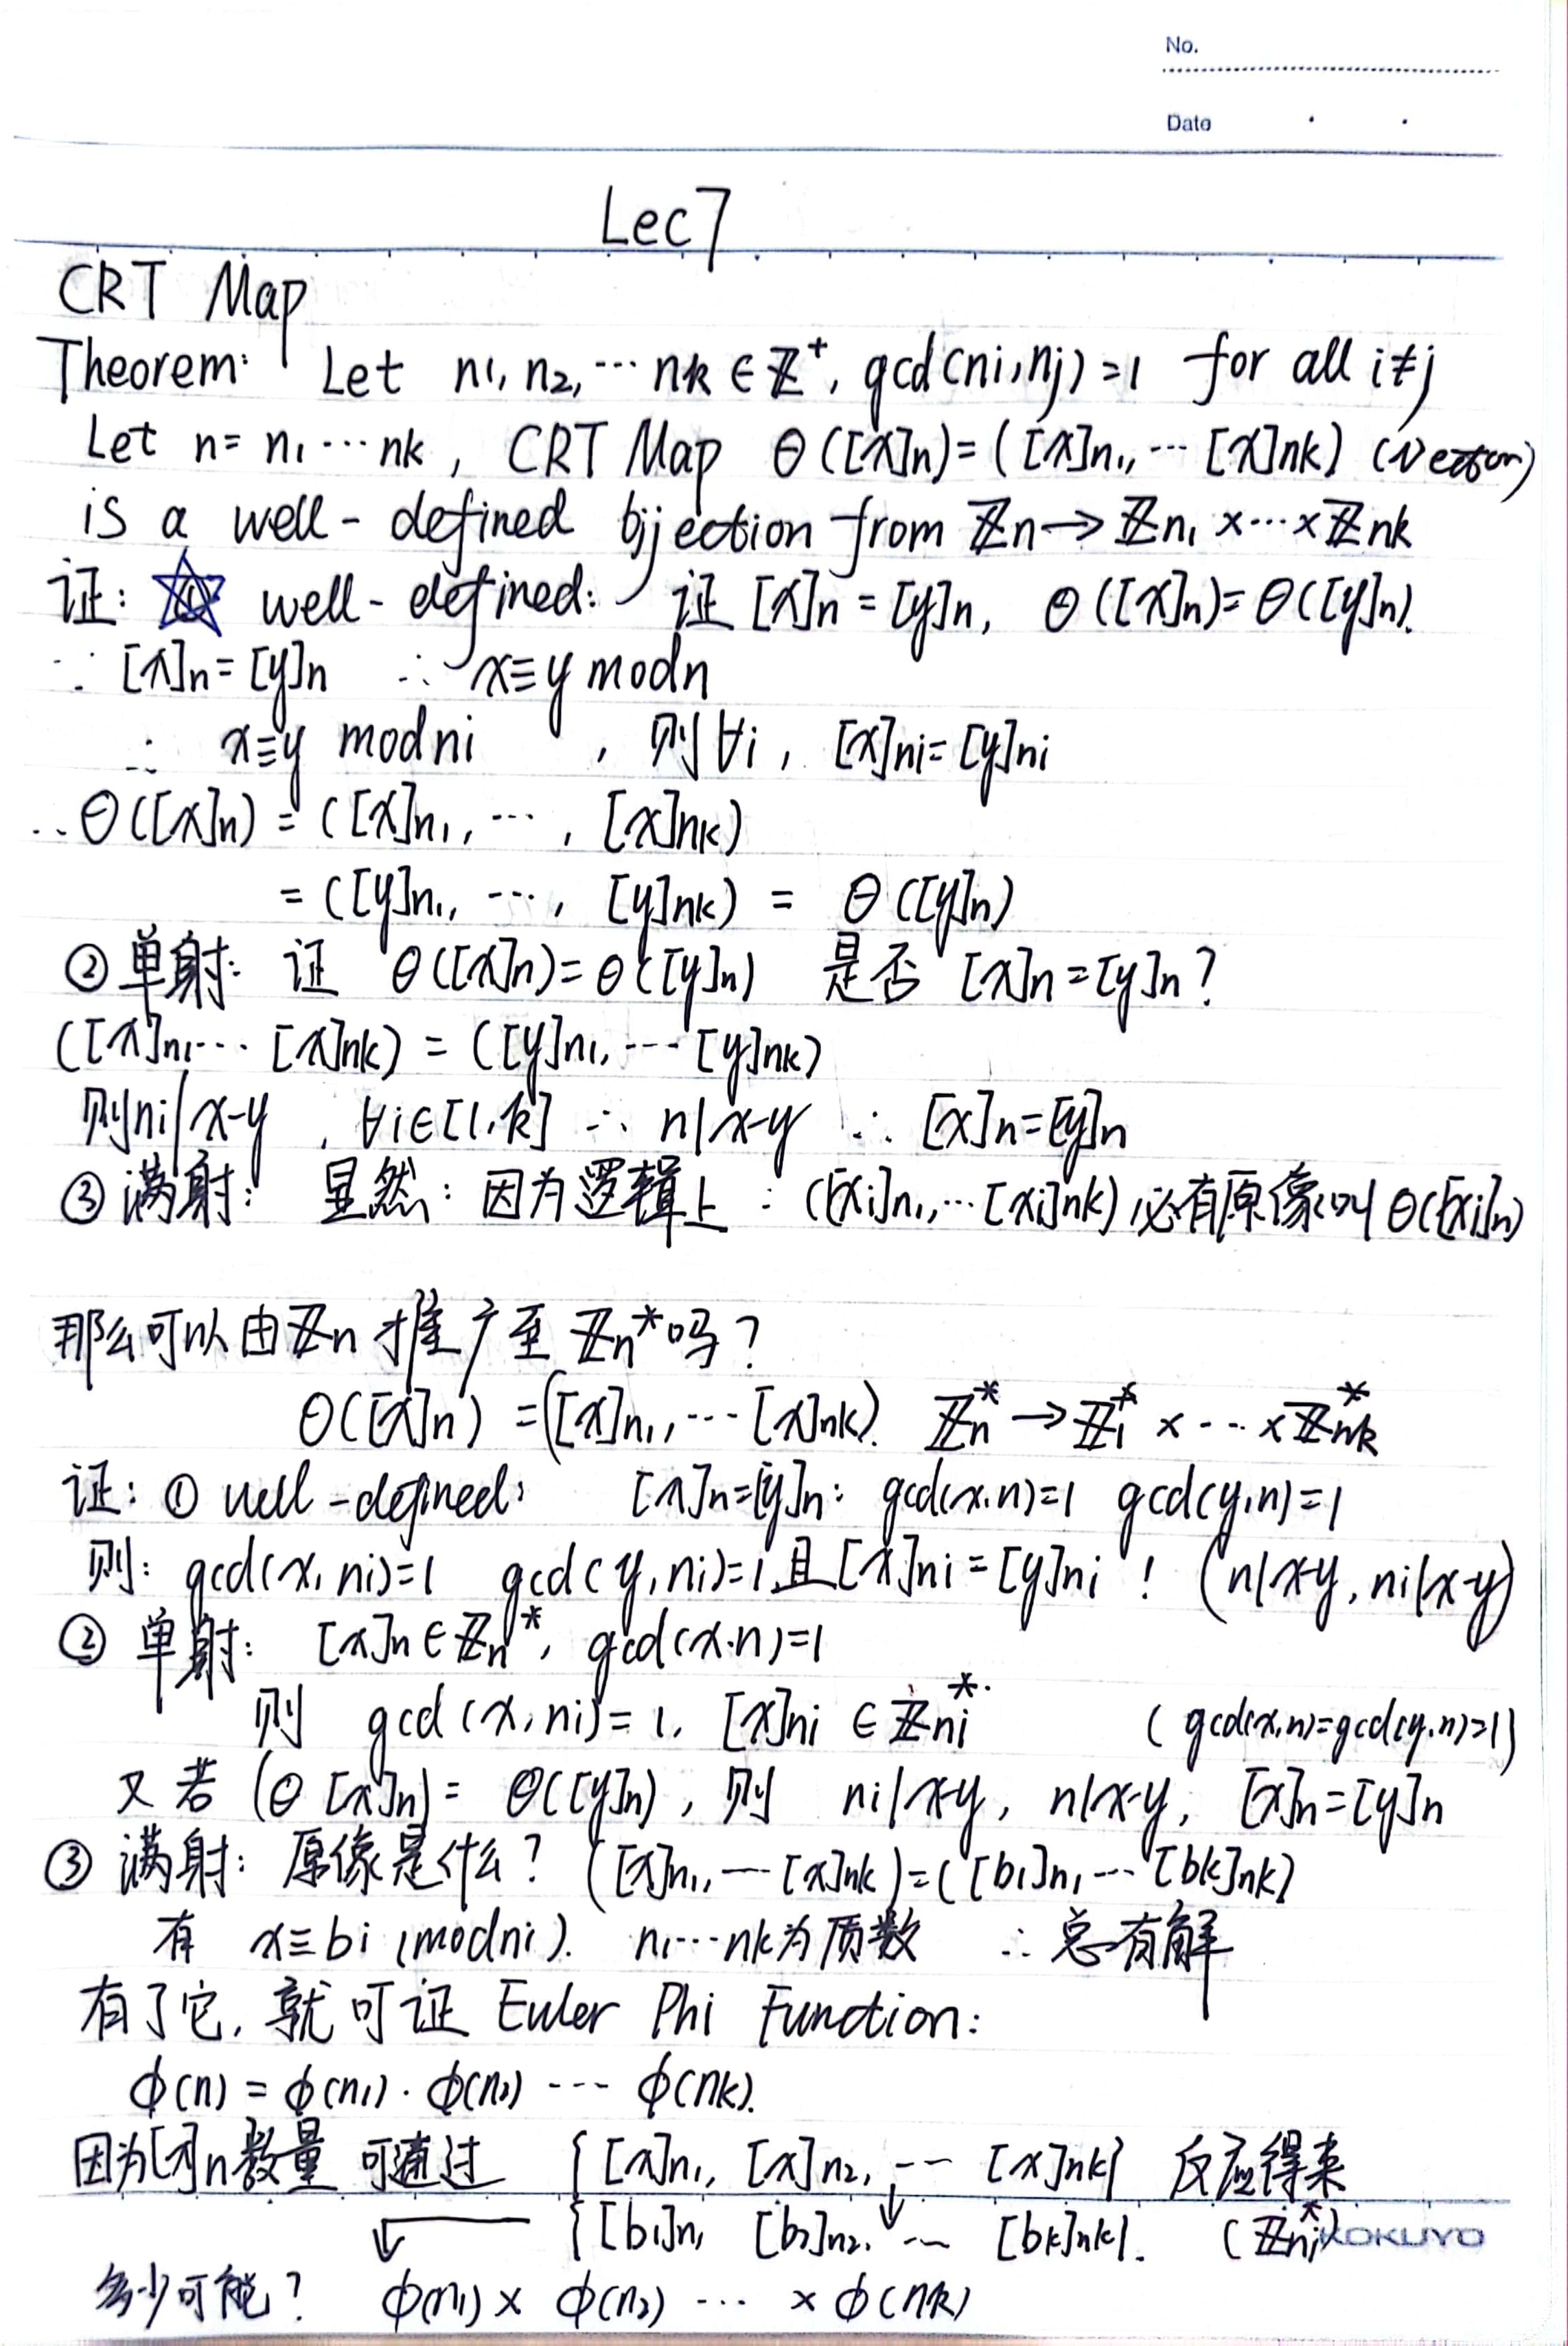 No.
Date
Lec 7
CRT Map
Theorem: Let n1, n2, ⋯ nk ∈ ℤ⁺, gcd(ni, nj) = 1 for all i≠j
Let n = n1 ⋯ nk , CRT Map θ([x]n) = ([x]n1, ⋯ [x]nk) (Vector)
is a well-defined bijection from ℤn → ℤn1 × ⋯ × ℤnk
证: ① well-defined: 证 [x]n = [y]n, θ([x]n) = θ([y]n).
∵ [x]n = [y]n ∴ x≡y mod n
∴ x≡y mod ni , 则 ∀i , [x]ni = [y]ni
∴ θ([x]n) = ([x]n1, ⋯ , [x]nk)
= ([y]n1, ⋯ , [y]nk) = θ([y]n)
② 单射: 证 θ([x]n) = θ([y]n) 是否 [x]n = [y]n ?
([x]n1 ⋯ [x]nk) = ([y]n1, ⋯ [y]nk)
则 ni | x-y , ∀i∈[1,k] ∴ n | x-y ∴ [x]n = [y]n
③ 满射: 显然: 因为逻辑上 : ([xi]n1, ⋯ [xi]nk) 必有原像叫 θ([xi]n)
那么可以由 ℤn 推广至 ℤn* 吗?
θ([x]n) = ([x]n1, ⋯ [x]nk). ℤn* → ℤ1* × ⋯ × ℤnk*
证: ① well-defined: [x]n = [y]n: gcd(x,n)=1 gcd(y,n)=1
则: gcd(x, ni)=1 gcd(y, ni)=1 且 [x]ni = [y]ni ! (n | x-y, ni | x-y)
② 单射: [x]n ∈ ℤn*, gcd(x,n)=1
则 gcd(x, ni) = 1, [x]ni ∈ ℤni* (gcd(x,n)=gcd(y,n)=1)
又若 (θ [x]n) = θ([y]n), 则 ni | x-y, n | x-y, [x]n = [y]n
③ 满射: 原像是什么? ([x]n1, ⋯ [x]nk) = ([b1]n1 ⋯ [bk]nk)
有 x≡bi (mod ni). n1⋯nk为质数 ∴ 总有解
有了它, 就可证 Euler Phi Function:
ϕ(n) = ϕ(n1) · ϕ(n2) ⋯ ϕ(nk).
因为[x]n数量 可通过 {[x]n1, [x]n2, ⋯ [x]nk} 反应得来
{[b1]n1 [b2]n2, ⋯ [bk]nk}. (ℤni*)
KOKUYO
多少可能? ϕ(n1) × ϕ(n2) ⋯ × ϕ(nk)